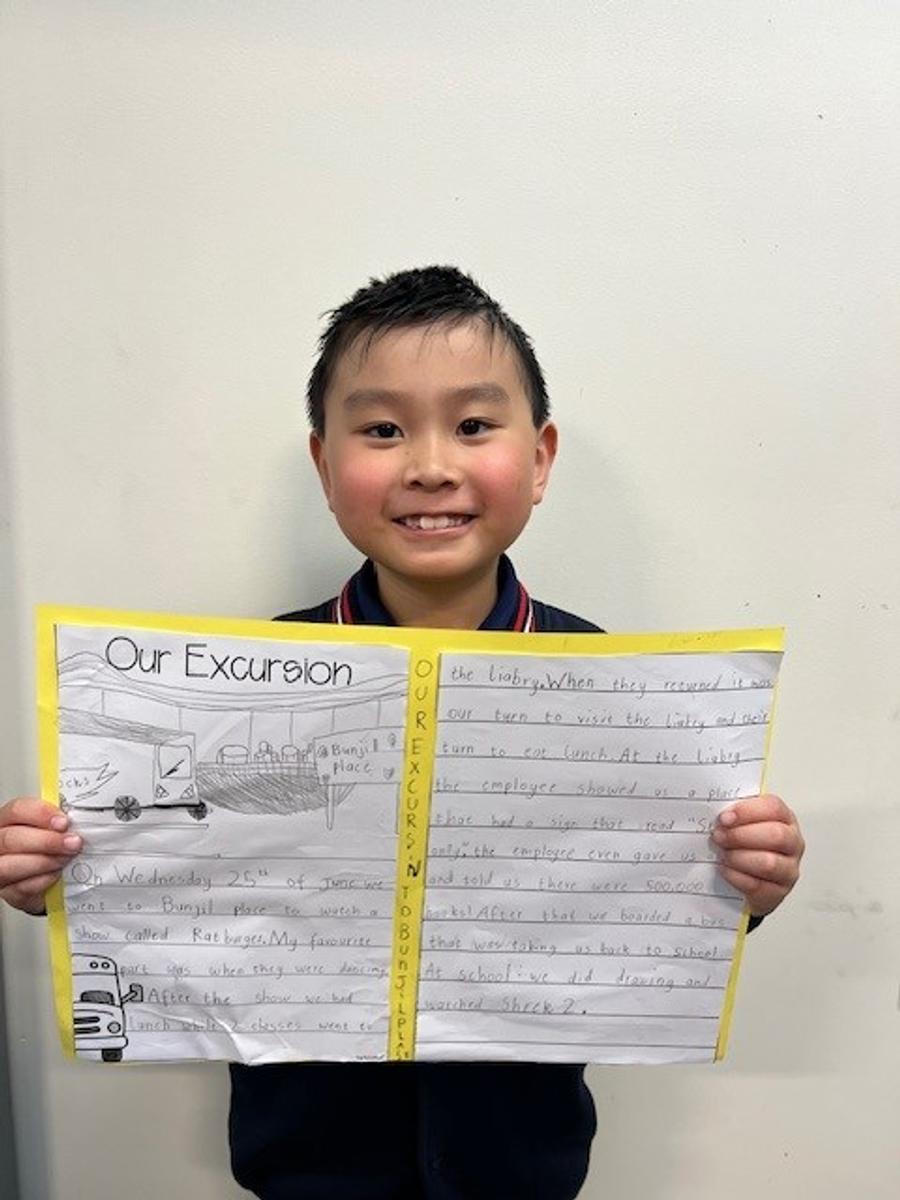 Our Excursion
Bunjil
Place
ocks
On Wednesday 25th of June we
went to Bunjil place to watch a
show called Ratbages. My favourite
part was when they were dancing.
After the show we had
lunch while 2 classes went to
OUR EXCURSION TO BUNJIL PLACE
the liabry. When they returned it was
our turn to visit the liabry and their
turn to eat lunch. At the liabry
the employee showed us a place
that had a sign that read "St
only". the employee even gave us a
and told us there were 500,000
books! After that we boarded a bus
that was taking us back to school.
At school: we did drawing and
watched Shrek 2.